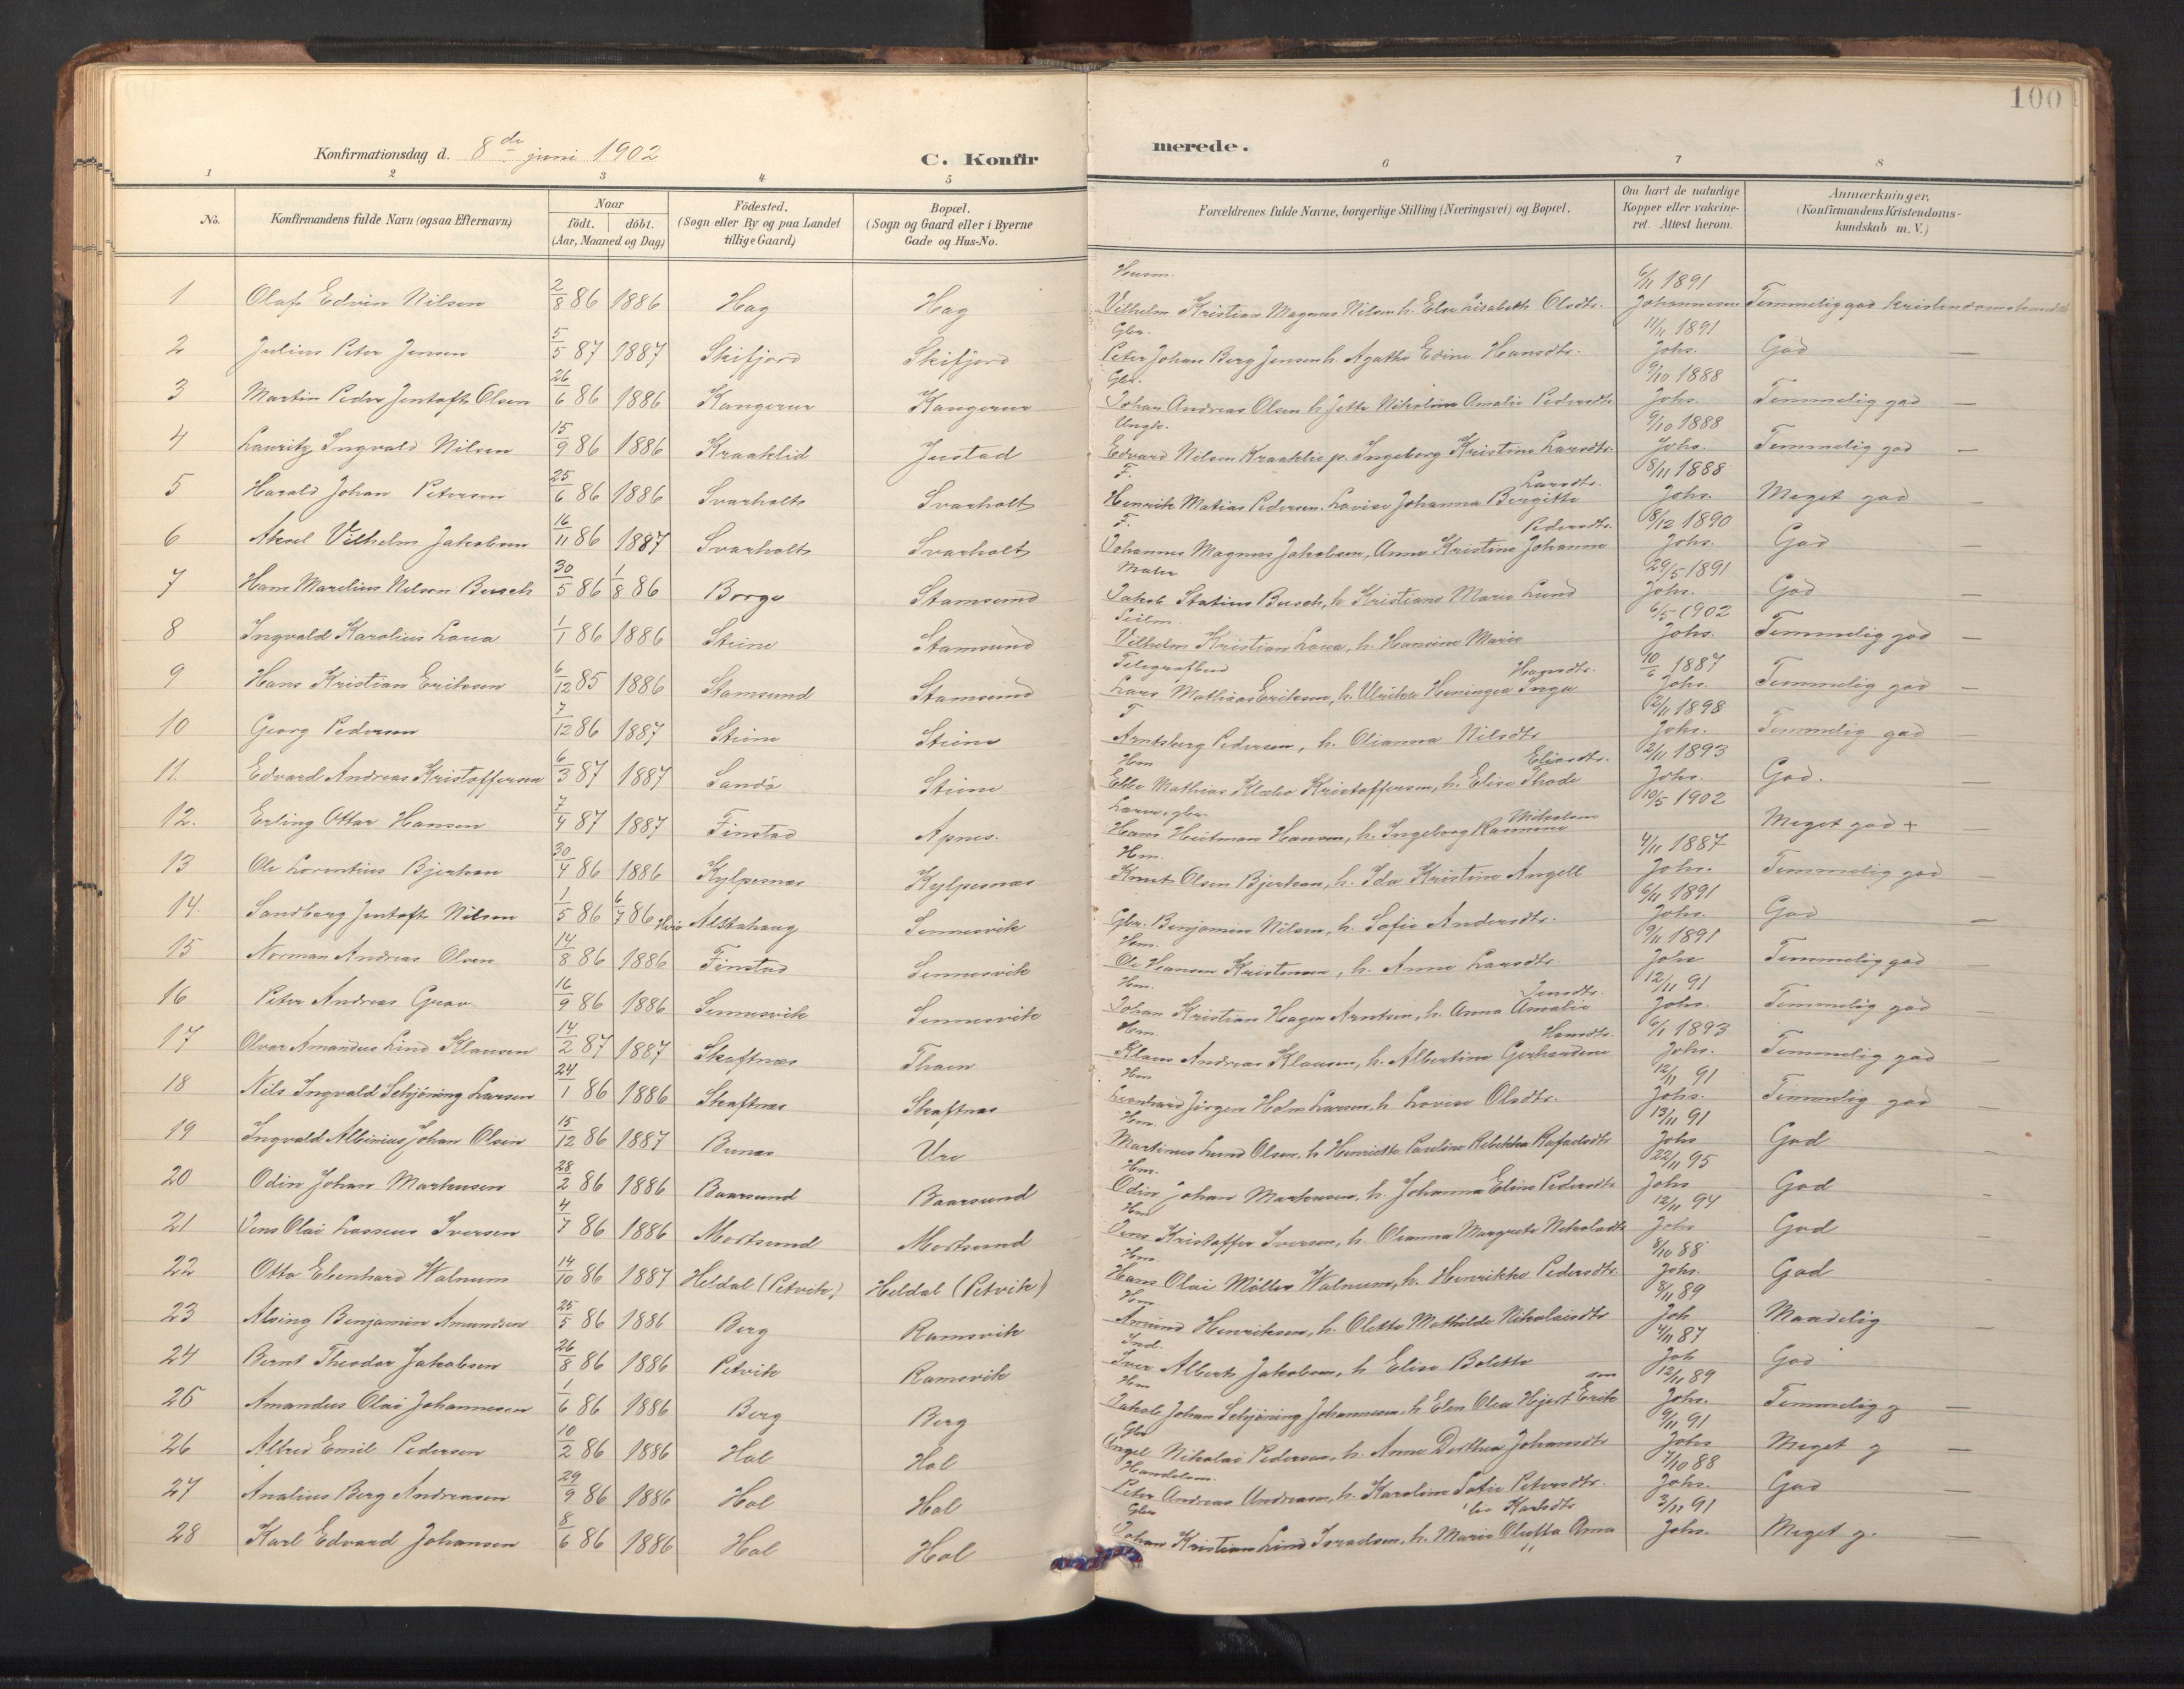 100
Konfirmationsdag d. 8de juni 1902
C. Konfirmerede.
1 2 3 4 5 6 7 8
No. Konfirmandens fulde Navn (ogsaa Efternavn) Naar födt. döbt. (Aar, Maaned og Dag) Födested. (Sogn eller By og paa Landet tillige Gaard) Bopæl. (Sogn og Gaard eller i Byerne Gade og Hus-No. Forældrenes fulde Navne, borgerlige Stilling (Næringsvei) og Bopæl. Om havt de naturlige Kopper eller vakcineret. Attest herom. Anmærkninger. (Konfirmandens Kristendomskundskab m. V.)
1 Olaf Edvin Nilsen 2/8 86 1886 Hag Hag Husm. Vilhelm Kristian Magnus Nilsen h. Else Lisabeth Olsdtr. 6/11 1891 Johannesen Temmelig god kristendomskundsk
2 Julius Peter Jensen 5/5 87 1887 Skifjord Skifjord Gbr. Peter Johan Berg Jensen h. Agathe Edine Hansdtr. 11/11 1891 Johs. God —
3 Martin Peder Jentoft Olsen 26/6 86 1886 Kangerur Kangerur Gbr. Johan Andreas Olsen h. Jette Nikoline Amalie Pedersdtr. 9/10 1888 Johs. Temmelig god —
4 Lauritz Ingvald Nilsen 15/9 86 1886 Kraaklid Justad Ungk. Edvard Nilsen Kraaklie p. Ingeborg Kristine Larsdtr. 9/10 1888 Johs. Temmelig god —
5 Harald Johan Petersen 25/6 86 1886 Svarholt Svarholt F. Henrik Matias Pedersen. Lovise Johanna Bergitte Larsdtr. 8/11 1888 Johs. Meget god —
6 Aksel Vilhelm Jakobsen 16/11 86 1887 Svarholt Svarholt F. Johannes Magnus Jakobsen, Anna Kristine Johanne Pedersdtr. 18/12 1890 Johs. God —
7 Hans Marelius Nilsen Busch 30/5 86 1/8 86 Borge Stamsund Maler Jakob Statius Busch, h. Kristiane Marie Lund 29/5 1891 Johs. God —
8 Ingvald Karolius Loua 1/1 86 1886 Steine Stamsund Seilm. Vilhelm Kristian Loua, h. Hansine Marie 6/5 1902 Johs. Temmelig god —
9 Hans Kristian Eriksen 6/12 85 1886 Stamsund Stamsund Telegrafbud Lars Mathias Eriksen, h. Ulrikke Heningea Inga Hagsdtr. 10/6 1887 Johs. Temmelig god —
10 Georg Pedersen 7/12 86 1887 Steine Steine F Arntsberg Pedersen, h. Olianna Nilsdtr 12/11 1898 Johs. Temmelig god —
11. Edvard Andreas Kristoffersen 6/3 87 1887 Sandö Steine Hm Ebbe Mathias Klæbo Kristoffersen, h. Elise Thode Eliasdtr. 2/11 1893 Johs. God. —
12. Erling Ottar Hansen 7/4 87 1887 Finstad Apnes. Lærer, gbr. Hans Heitman Hansen, h. Ingeborg Rasmine Nikolsen 10/5 1902 Meget god + —
13 Ole Lorentius Bjerkan 30/4 86 1886 Kylpesnes Kylpesnes Hm. Knut Olsen Bjerkan, h. Ida Kristine Angell 4/11 1887 Johs. Temmelig god —
14. Sandberg Jentoft Nilsen 1/5 86 6/7 86 Herö Alstahaug Sennesvik Gbr. Benjamin Nilsen, h. Sofie Andersdtr. 6/11 1891 Johs. God —
15 Norman Andreas Olsen 14/8 86 1886 Finstad Sennesvik Hm. Ole Hansen Kristensen, h. Anne Larsdtr. 9/11 1891 Johs Temmelig god —
16 Peter Andreas Grav 16/9 86 1886 Sennesvik Sennesvik Hm. Johan Kristian Hagen Arntsen, h. Anna Amalie Jensdtr. 12/11 91 Johs. Temmelig god —
17 Olvar Amandus Lind Klausen 14/2 87 1887 Skaftnes Thaen Hm. Klaus Andreas Klausen, h. Albertine Gerhardine Hansdtr. 6/1 1893 Johs. Temmelig god —
18 Nils Ingvald Schjöning Larsen 24/1 86 1886 Skaftnes Skaftnes Hm Leonhard Jörgen Holm Larsen, h. Lovise Olsdtr. 12/11 91 Johs. Temmelig god —
19 Ingvald Albinius Johan Olsen 15/12 86 1887 Bunes Ure Hm. Martinus Lund Olsen, h. Henriette Pauline Rebekka Rafaelsdtr 13/11 91 Johs God —
20 Odin Johan Markusen 28/2 86 1886 Baarsund Baarsund Hm. Odin Johan Markusen, h. Johanna Elin Pedersdtr 22/11 95 Johs God —
21 Jens Olai Lasseus Iversen 4/7 86 1886 Mortsund Mortsund Hm Jens Kristoffer Iversen, h. Olianna Margrete Nikolaidtr 12/11 94 Johs God —
22 Otto Ebenhard Walnum 14/10 86 1887 Heldal (Petvik) Heldal (Petvik) Hm Hans Olai Möller Walnum, h. Henrikke Pedersdtr. 8/10 88 Johs. God —
23 Alsing Benjamin Amundsen 25/5 86 1886 Berg Ramsvik Hm Amund Henriksen, h. Olette Mathilde Nikolaisdtr 8/11 89 Joh Maadelig —
24 Bernt Theodor Jakobsen 26/8 86 1886 Petvik Ramsvik Ind. Iver Albert Jakobsen, h Elise Bolette 4/11 87 Joh God —
25 Amandus Olai Johannesen 1/6 86 1886 Berg Berg Hm Jakob Johan Schjöning Johannesen. h. Elen Olea Hjert Eriksen 12/11 89 Johs. Temmelig g —
26 Alfred Emil Pedersen 10/2 86 1886 Hol Hol Gbr Engel Nikolai Pedersen, h. Anne Dorthea Johansdtr 9/11 91 Johs Meget g —
27 Analius Berg Andreasen 29/9 86 1886 Hol Hol Handelsm. Peter Andreas Andreasen, h. Karoline Sofie Petersdtr. 7/10 88 Johs. God —
28 Karl Edvard Johansen 8/6 86 1886 Hol Hol Gbr Johan Kristian Lind Israelsen. h. Marie Oluffa Anna Karlsdtr 3/11 91 Johs. Meget g. —